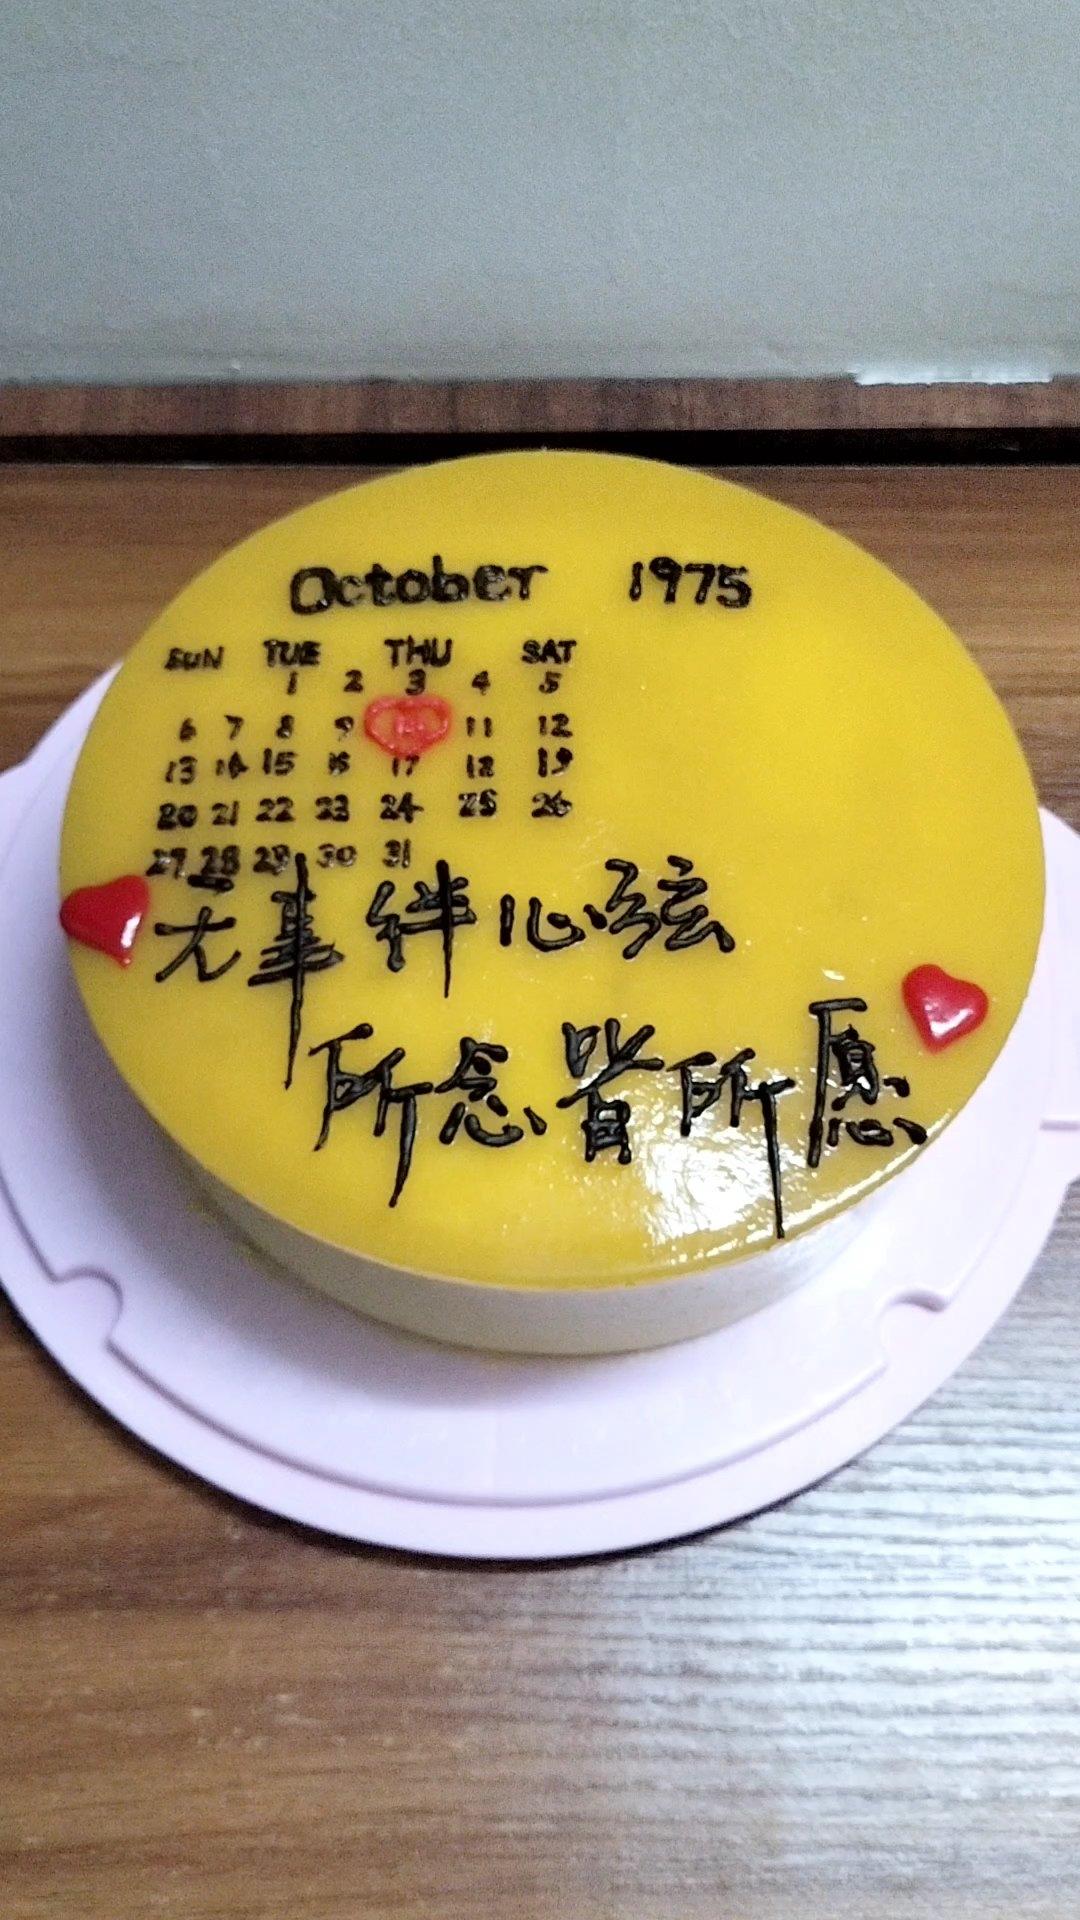 October 1975
SUN TUE THU SAT
1 2 3 4 5
6 7 8 9 10 11 12
13 14 15 16 17 18 19
20 21 22 23 24 25 26
27 28 29 30 31
无事绊心弦
所念皆所愿